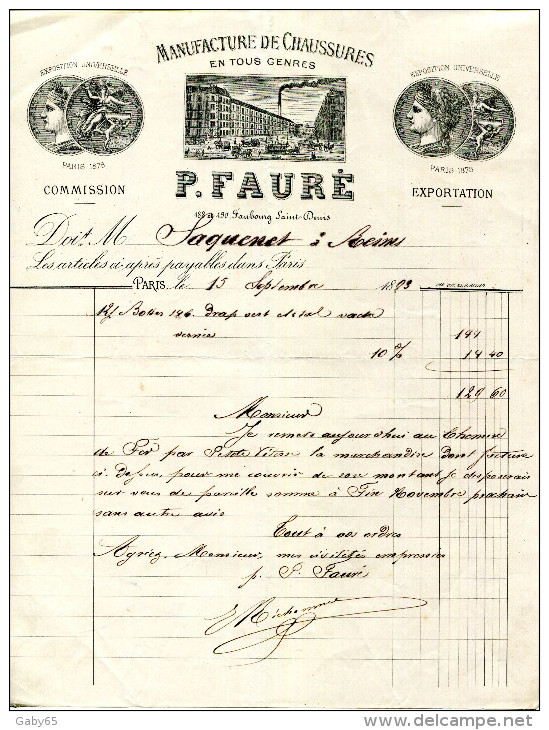 MANUFACTURE DE CHAUSSURES
EN TOUS GENRES
EXPOSITION UNIVERSELLE
PARIS 1878
COMMISSION
EXPOSITION UNIVERSELLE
PARIS 1878
EXPORTATION
P. FAURÉ
188 & 190 Faubourg Saint-Denis
Doit M Jaquenet à Reims
Les articles ci-après payables dans Paris
PARIS, le 15 Septembre 1893
12/ Bottes 126 drap vert vache
vernie 144
10 % 14 40
129 60
Monsieur
Je remets aujourd'hui au Chemin
de Fer par Petite Vitesse la marchandise dont facture
ci dessus, pour me couvrir de son montant je disposerais
sur vous de pareille somme à Fin Novembre prochain
sans autre avis
Tout à vos ordres
Agréez, Monsieur, mes civilités empressées
p. P. Fauré
Gaby65
delcampe.net